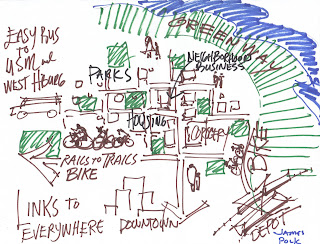 GREENWAY
EASY BUS
TO
USM and
WEST H'BURG
PARKS
NEIGHBORHOOD
BUSINESS
HOUSING
RAILS TO TRAILS
BIKE
LINKS TO
EVERYWHERE
DOWNTOWN
DEPOT
JAMES
POLK